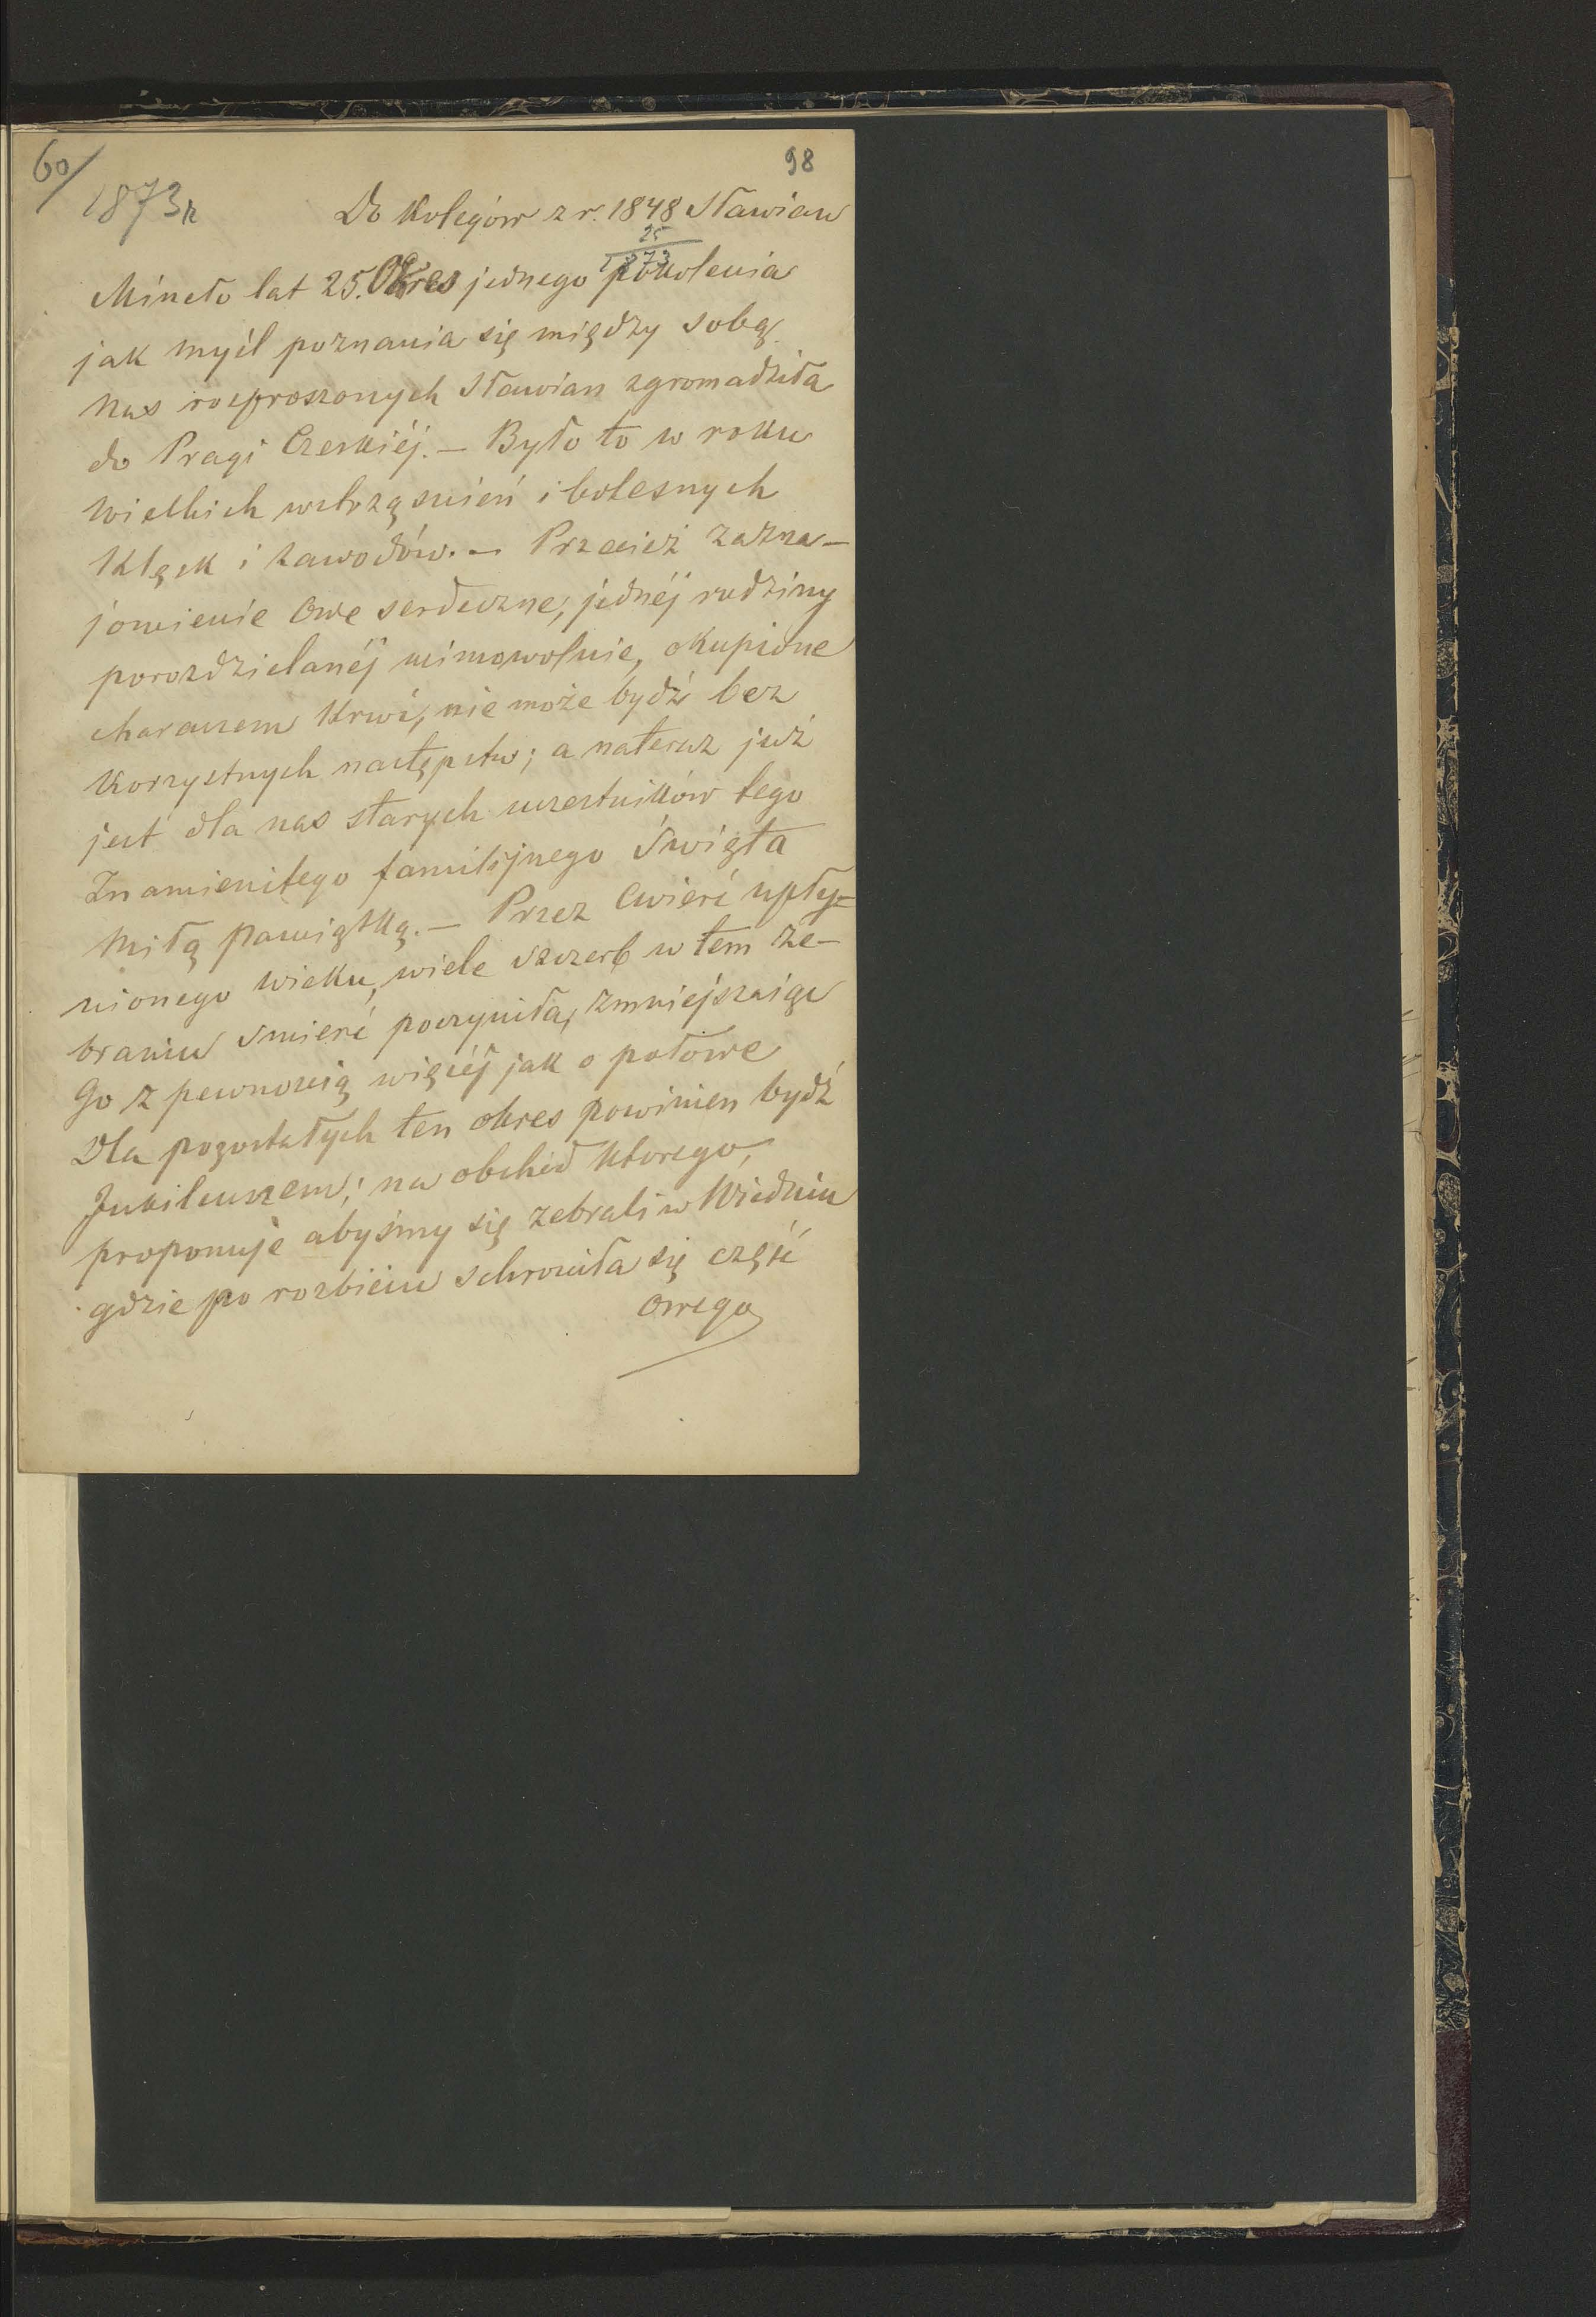 60/
98
1873 r
Do Kolegów z r. 1848 Sławian
25
1873
Mineło lat 25. Okres jednego pokolenia
jak myśl poznania się między sobą
nas rozproszonych Sławian zgromadziła
do Pragi Czeskiéj. — Było to w roku
wielkich wstrząśnień i bolesnych
klęsk i zawodów. — Przecież zazna-
jomienie owe serdeczne, jednéj rodziny
porozdzielanéj mimowolnie, okupione
characzem krwi, nie może bydź bez
korzystnych następstw; a nateraz już
jest dla nas starych uczestników tego
Znamienitego familijnego Święta
miłą pamiątką. — Przez ćwierć upły-
nionego wieku, wiele szczerb w tem ze-
braniu śmierć poczyniła, zmniejszaiąc
Go z pewnością więcéj jak o połowe
Dla pozostałych ten okres powinien bydź
Jubileuszem; na obchód którego,
proponuje abyśmy się zebrali w Wiedniu
gdzie po rozbiciu schroniła się część
owego